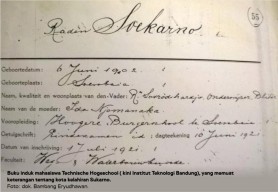 55
Raden Soekarno
Geboortedatum: 6 Juni 1902.
Geboorteplaats: Soerabaia
Naam, kwaliteit en woonplaats van den Vader: R. Soekodihardjo Onderwijzer, Blitar
Naam van de moeder: Ida Njomanaka
Vooropleiding: Hoogere Burgerschool te Soerabaia
Getuigschrift: Eindexamen id: dagteekening 10 Juni 1921.
Datum van inschrijving: 1 Juli 1921.
Faculteit: Weg & Waterbouwkunde
Buku induk mahasiswa Technische Hogeschool ( kini Institut Teknologi Bandung), yang memuat
keterangan tentang kota kelahiran Sukarno.
Foto: dok. Bambang Eryudhawan